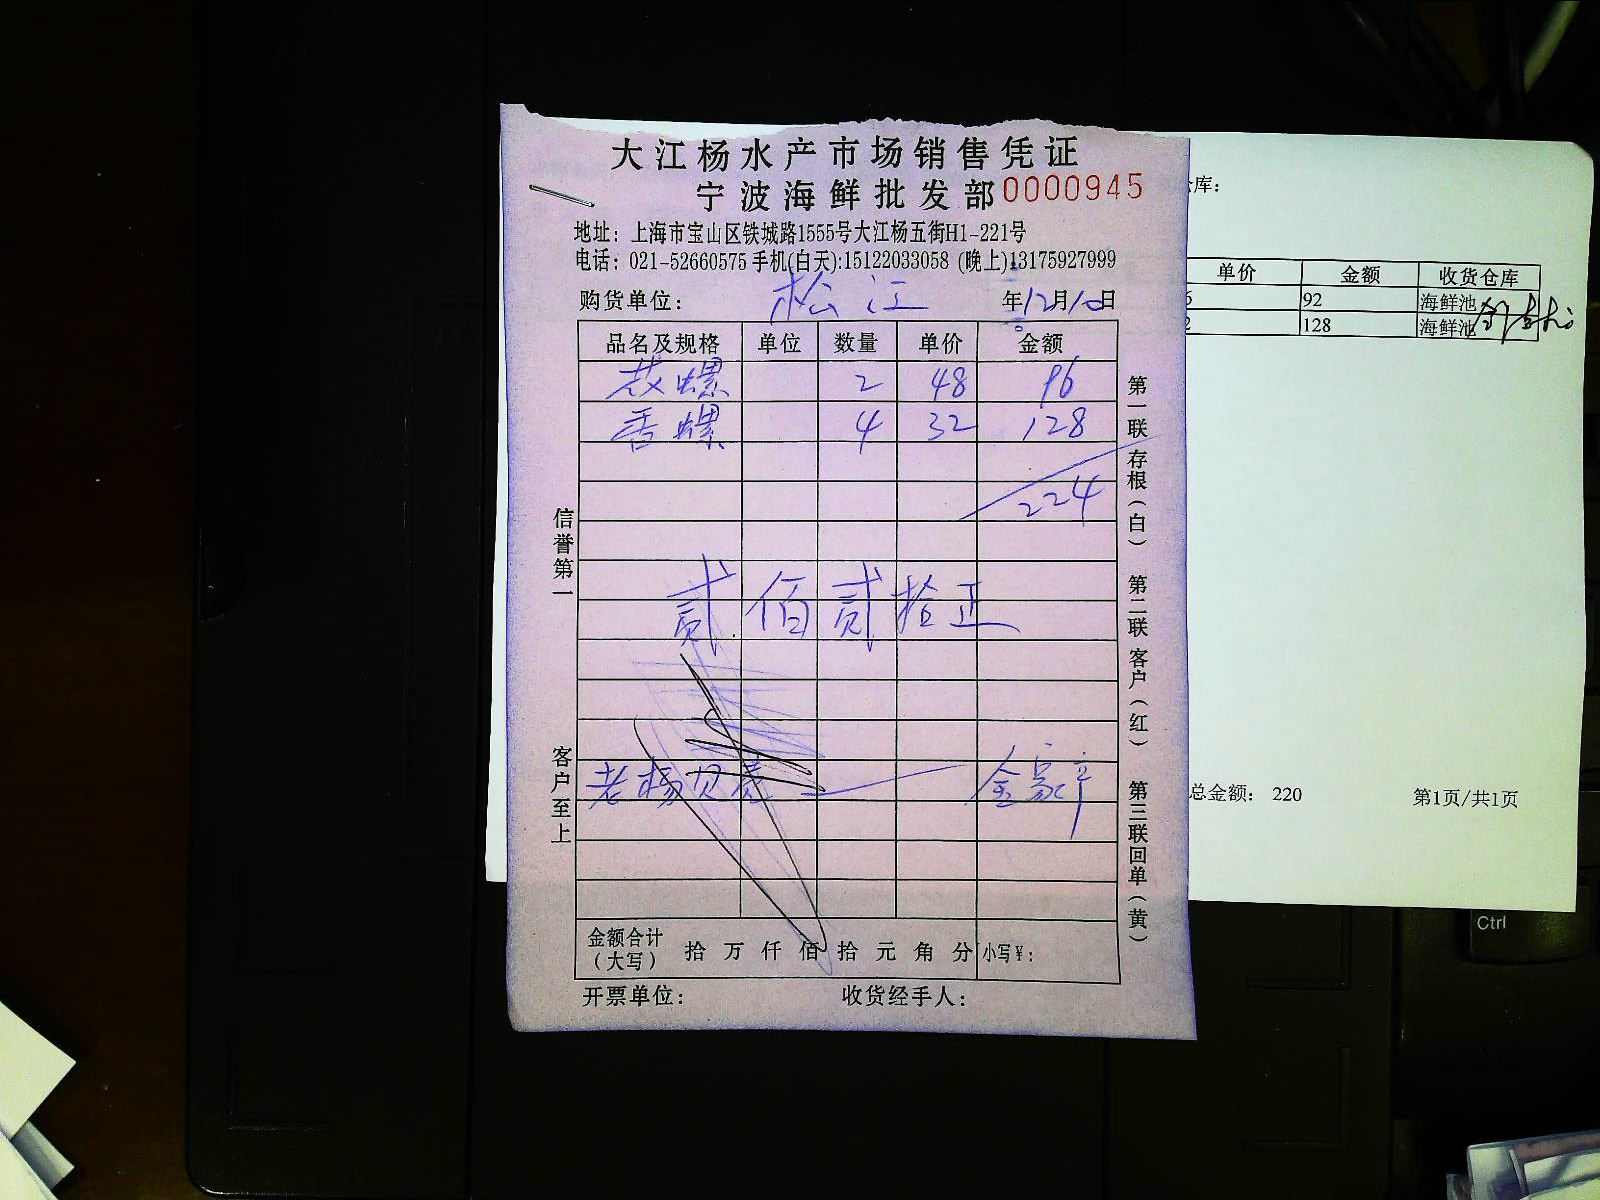 大江杨水产市场销售凭证
宁波海鲜批发部 0000945
地址：上海市宝山区铁城路1555号大江杨五街H1-221号
电话：021-52660575 手机(白天):15122033058 (晚上)13175927999
购货单位： 松江 年12月10日
品名及规格 单位 数量 单价 金额
螺 2 48 96
香螺 4 32 128
224
贰佰贰拾正
老杨贝壳 金家
金额合计（大写） 拾 万 仟 佰 拾 元 角 分 小写￥：
开票单位： 收货经手人：
信誉第一
客户至上
第一联 存根（白） 第二联 客户（红） 第三联 回单（黄）
库：
单价 金额 收货仓库
6 92 海鲜池
2 128 海鲜池
总金额： 220 第1页/共1页
Ctrl